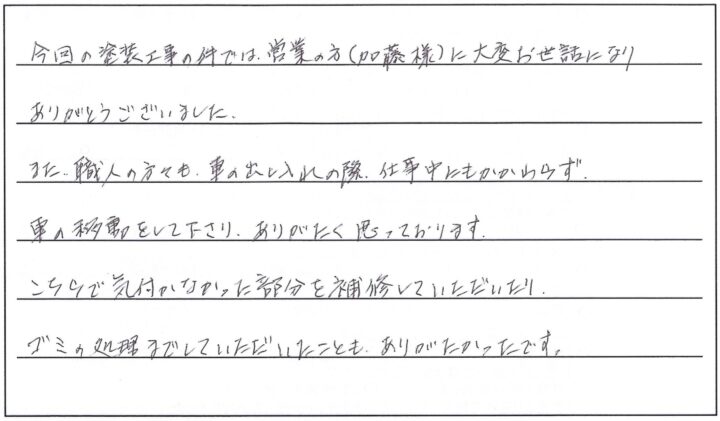 今回の塗装工事の件では、営業の方(加藤様)に大変お世話になり
ありがとうございました。
また、職人の方々も、車の出し入れの際、仕事中にもかかわらず、
車の移動をして下さり、ありがたく思っております。
こちらで気付かなかった部分を補修していただいたり、
ゴミの処理までしていただいたことも、ありがたかったです。